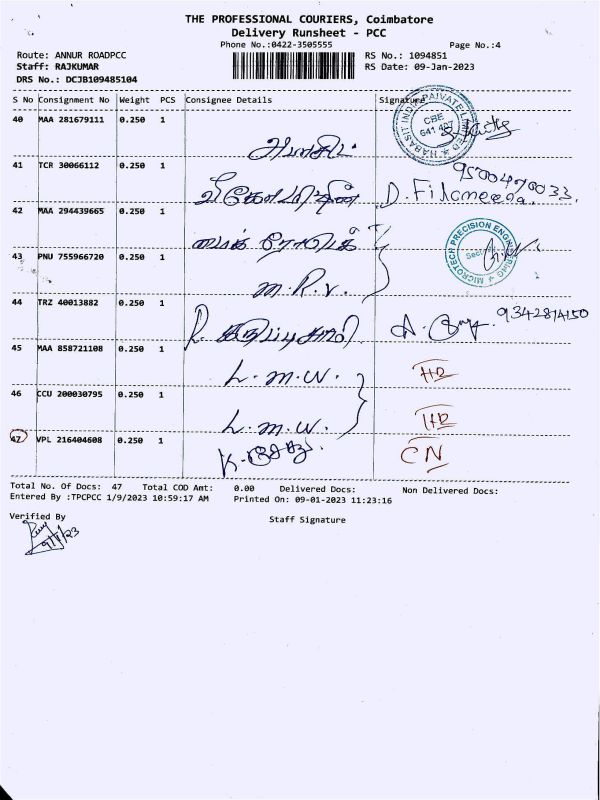 THE PROFESSIONAL COURIERS, Coimbatore
Delivery Runsheet - PCC
Phone No.:0422-3505555
Page No.:4
Route: ANNUR ROADPCC
RS No.: 1094851
Staff: RAJKUMAR
RS Date: 09-Jan-2023
DRS No.: DCJB109485104
S No Consignment No Weight PCS Consignee Details Signature
40 MAA 281679111 0.250 1
HABASIT INDIA PRIVATE LIMITED
CBE
641 407
41 TCR 30066112 0.250 1
9500470033
D. Filomeena
42 MAA 294439665 0.250 1
MICROTECH PRECISION ENGINEERING
43 PNU 755966720 0.250 1
M.P.V.
44 TRZ 40013882 0.250 1
9342814150
45 MAA 858721108 0.250 1
L.M.W.
HR
46 CCU 200030795 0.250 1
L.M.W.
HR
47 VPL 216404608 0.250 1
CN
Total No. Of Docs: 47 Total COD Amt: 0.00 Delivered Docs: Non Delivered Docs:
Entered By :TPCPCC 1/9/2023 10:59:17 AM Printed On: 09-01-2023 11:23:16
Verified By
Staff Signature
9/1/23